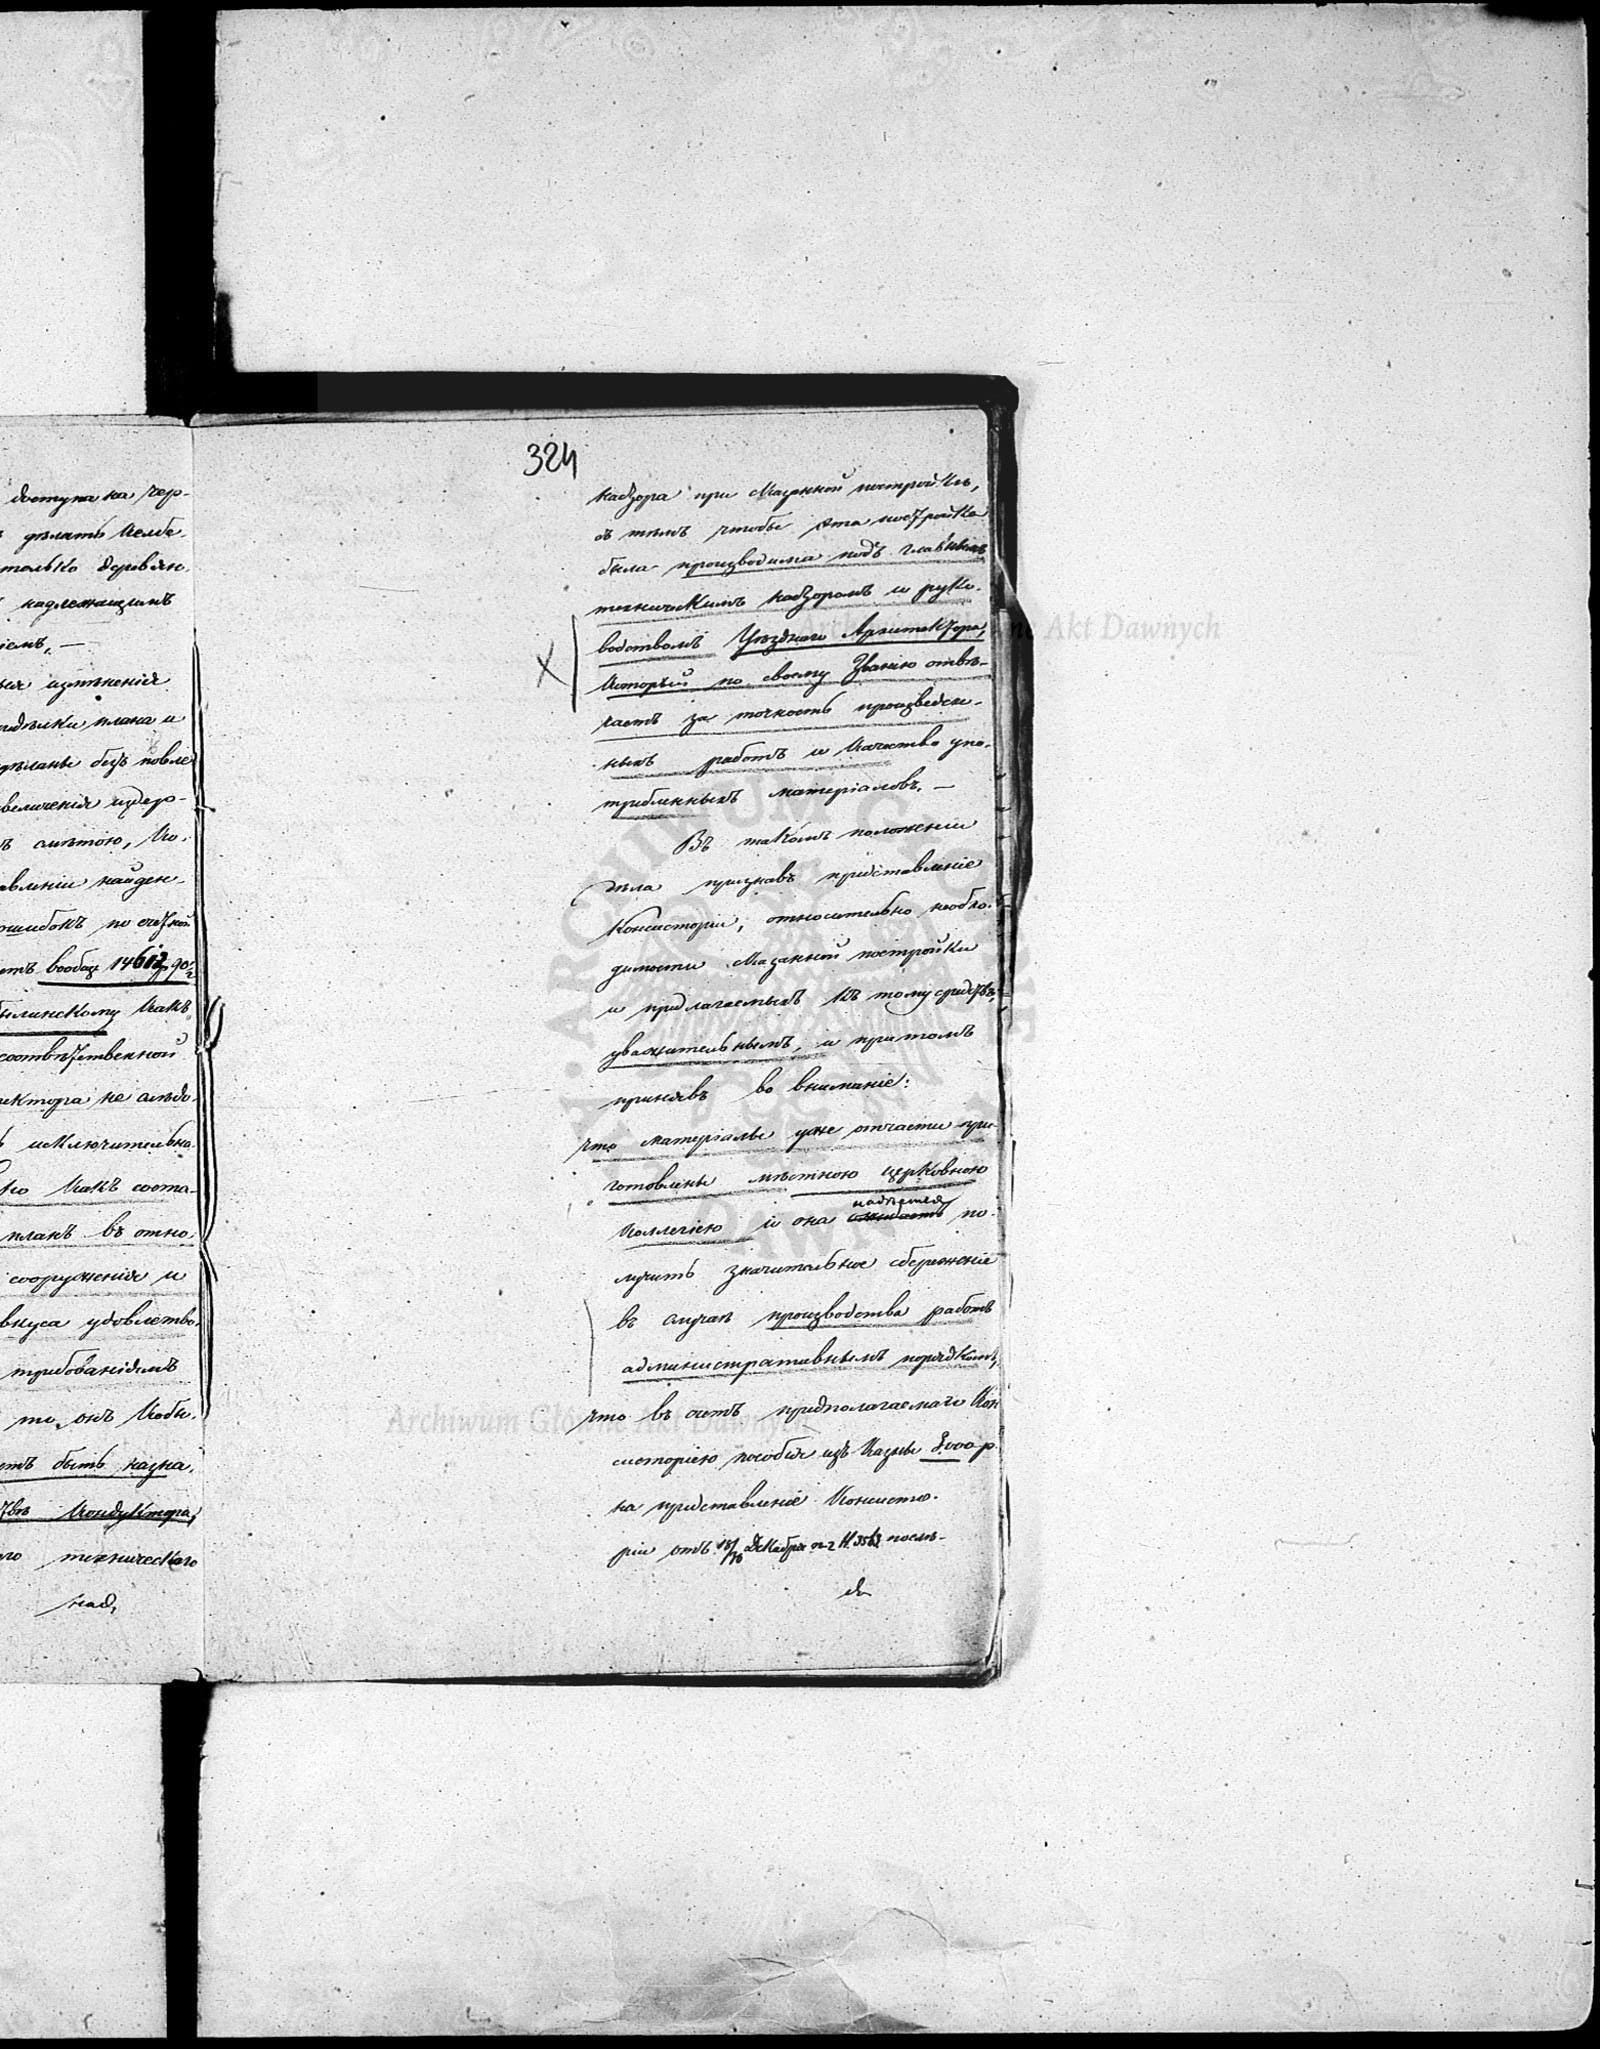 доступа на чер-
дѣлать
только деревян.
надлежащимъ
іемъ, —
измѣненія
плана и
сдѣланы безъ повле
величенія издер-
смѣтою, ко.
авленіи найден-
ошибокъ по счетной
вообще 1461 90
лискому какъ
соотвѣтственной
уктора не слѣдо.
исключительно
какъ соста-
планъ въ отно.
сооруженія и
вкуса удовлетво.
требованіямъ
то онъ кобы.
быть назна.
Кондуктора,
техническаго
над,
324
надзора при Мазанной постройкѣ,
съ тѣмъ чтобы эта постройка
была производима подъ главнымъ
техническимъ надзоромъ и руко.
водствомъ Уѣзднаго Архитектора,
который по своему званію отвѣ-
чаетъ за точность произведен-
ныхъ работъ и качество упо.
требленныхъ матеріаловъ. —
Въ такомъ положеніи
дѣла признавъ представленіе
Консисторіи, относительно необхо.
димости Мазанной постройки
и предлагаемыхъ къ тому средствъ,
уважительнымъ, и притомъ
принявъ во вниманіе:
что матеріалы уже отчасти при-
готовлены мѣстною церковною
надѣется
коллегіею и она ожидаетъ по-
лучить значительное сбереженіе
въ случаѣ производства работъ
административнымъ порядкомъ,
что въ счетъ предполагаемаго Кон
систоріею пособія изъ Казны 3000 р.
на представленіе Консисто.
ріи отъ 18/30 Декабря п. г. N. 3563 послѣ-
до
Archiwum Główne Akt Dawnych
Archiwum Główne Akt Dawnych